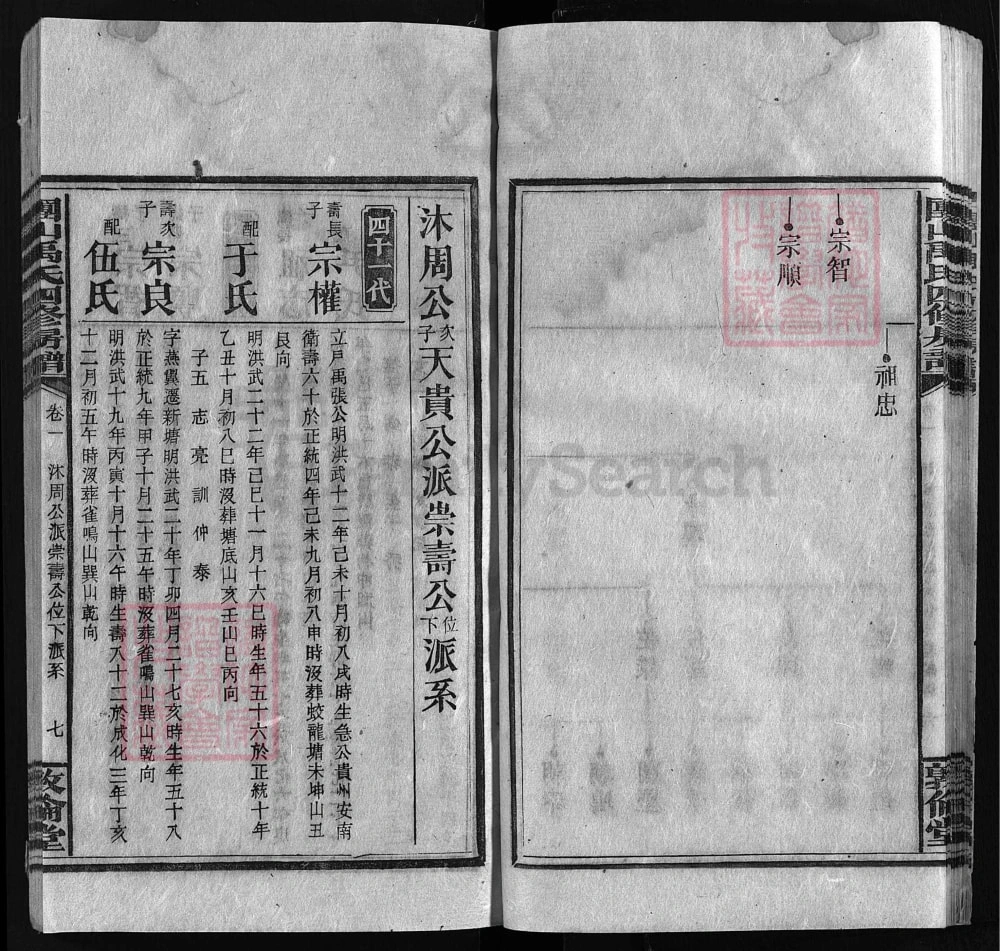 宗智
宗順
祖忠
沐周公次子天貴公派崇壽公位下派系
四十一代
壽長子 宗權
立戸禹張公明洪武十二年己未十月初八戌時生急公貴州安南
衛壽六十於正統四年己未九月初八申時沒葬蛟龍塘未坤山丑
艮向
配 于氏
明洪武二十二年己巳十一月十六巳時生年五十六於正統十年
乙丑十月初八巳時沒葬塘底山亥壬山巳丙向
子五 志 亮 訓 仲 泰
壽次子 宗良
字燕與遷新塘明洪武二十年丁卯四月二十七亥時生年五十八
於正統九年甲子十月二十五午時沒葬雀鳴山巽山乾向
配 伍氏
明洪武十九年丙寅十月十六午時生壽八十二於成化三年丁亥
十二月初五午時沒葬雀鳴山巽山乾向
團山禹氏四修房譜 卷一 沐周公派崇壽公位下派系 七 敦倫堂